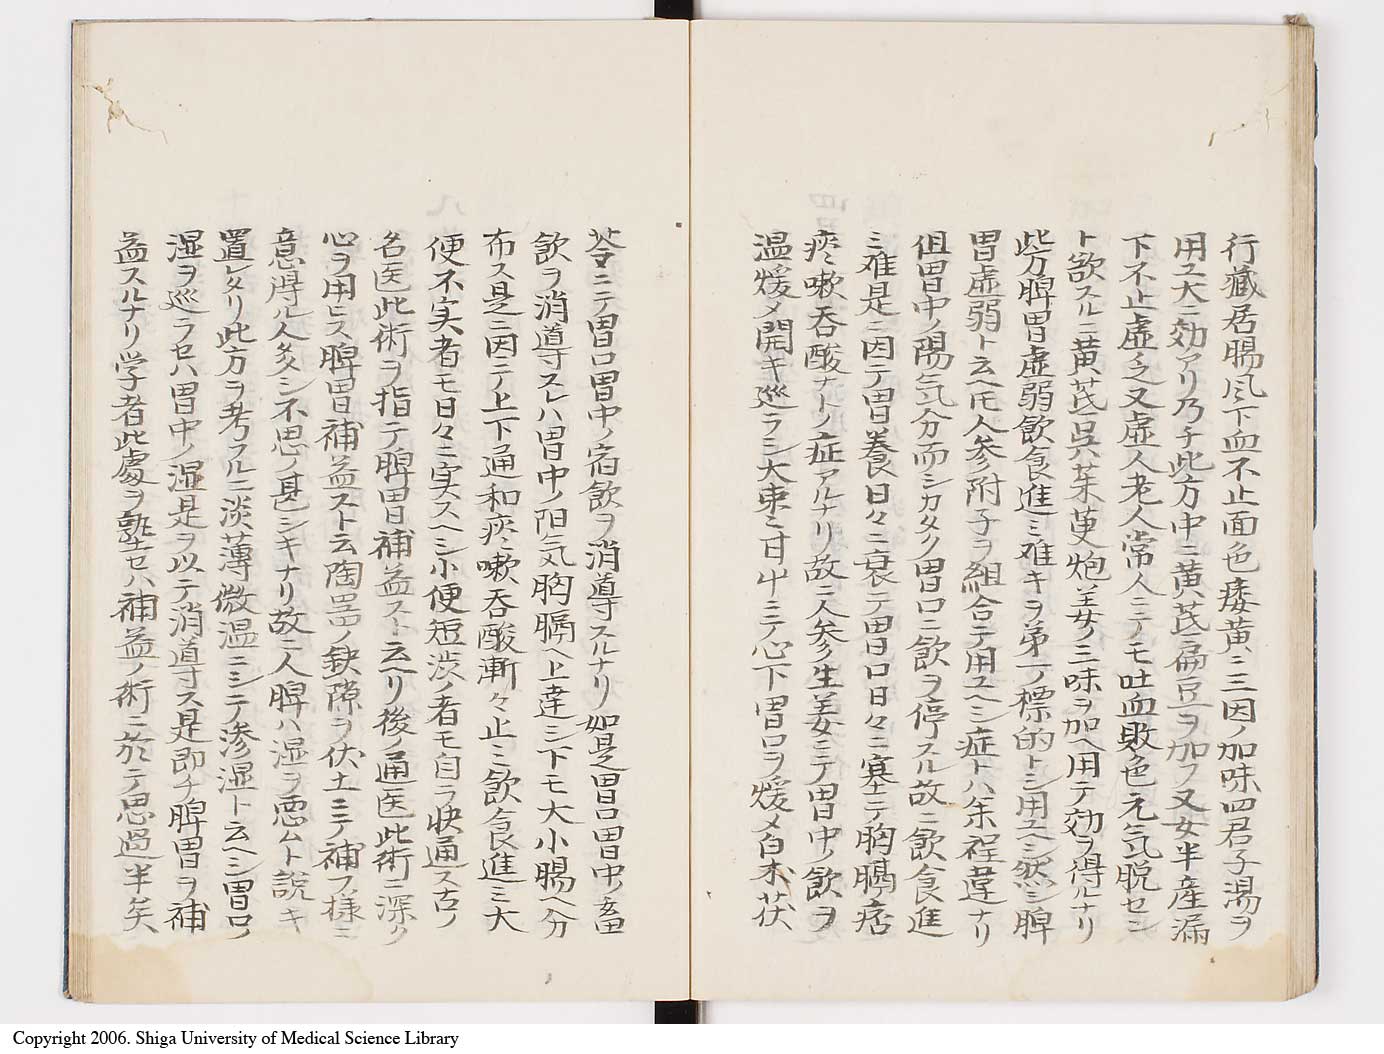 行藏居腸风下血不止面色痿黄ニ三因ノ加味四君子湯ヲ
用ユ大ニ効アリ乃チ此方中ニ黄芪扁豆ヲ加フ又女半産漏
下不止虚乏又虚人老人常人ニテモ吐血敗色元気脱セン
ト欲スルニ黄芪呉茱萸炮姜ノ三味ヲ加ヘ用テ効ヲ得ルナリ
此方脾胃虚弱飲食進ミ難キヲ第一ノ標的トシ用ユヘシ然シ脾
胃虚弱ト云ヘ𪜈人参附子ヲ組合テ用ユヘシ症トハ余程違ナリ
但胃中ノ陽気分而シカタク胃口ニ飲ヲ停スル故ニ飲食進
ミ難是ニ因テ胃養日々ニ衰テ胃口日々ニ塞テ胸膈痞
痰嗽呑酸ナトノ症アルナリ故ニ人参生姜ニテ胃中ノ飲ヲ
温煖メ開キ巡ラシ大棗ミ甘艸ミテ心下胃口ヲ煖メ白朮茯
苓ニテ胃口胃中ノ宿飲ヲ消導スルナリ如是胃口胃中ノ畜
飲ヲ消導スレハ胃中ノ阳気胸膈ヘ上達シ下モ大小腸ヘ分
布ス是ニ因テ上下通和痰嗽呑酸漸々止ミ飲食進ミ大
便不実者モ日々ニ実スヘシ小便短渋ノ者モ自ラ快通ス古ノ
名医此術ヲ指テ脾胃補益スト云ヘリ後ノ通医此術ニ深ク
心ヲ用ヒス脾胃補益スト云陶器ノ鈌隙ヲ伏土ミテ補フ様ニ
意得ル人多シ不思ノ甚シキナリ故ニ人脾ハ湿ヲ悪ムト説キ
置レタリ此方ヲ考フルニ淡薄微温ニシテ渗湿ト云ヘシ胃口ノ
湿ヲ巡ラセハ胃中ノ湿是ヲ以テ消導ス是即チ脾胃ヲ補
益スルナリ学者此處ヲ塾セハ補益ノ術ニ於テ思過半矣
Copyright 2006. Shiga University of Medical Science Library